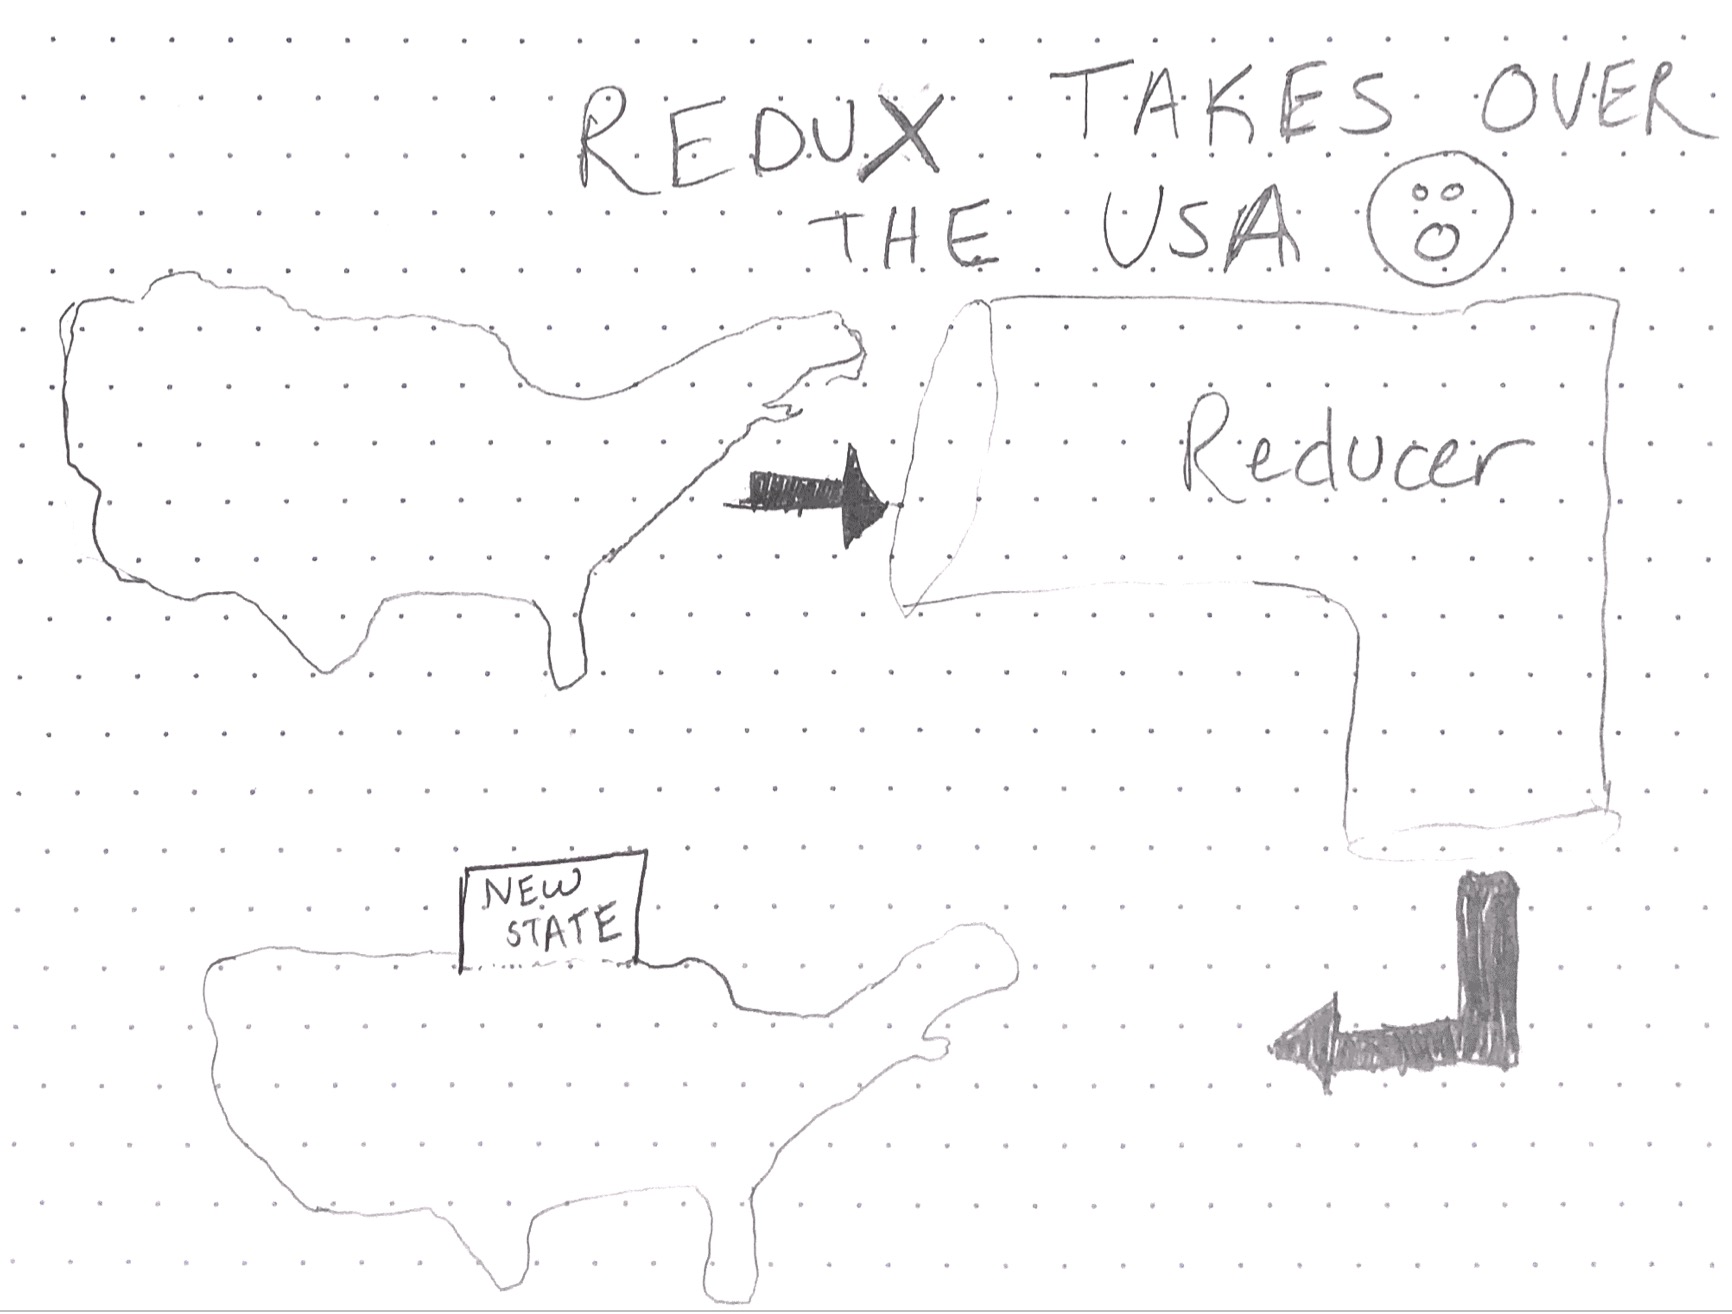 REDUX TAKES OVER
THE USA
Reducer
NEW
STATE